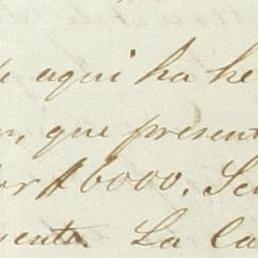 e aqui ha he
n, que present
or $6000. Se
sente. La ca